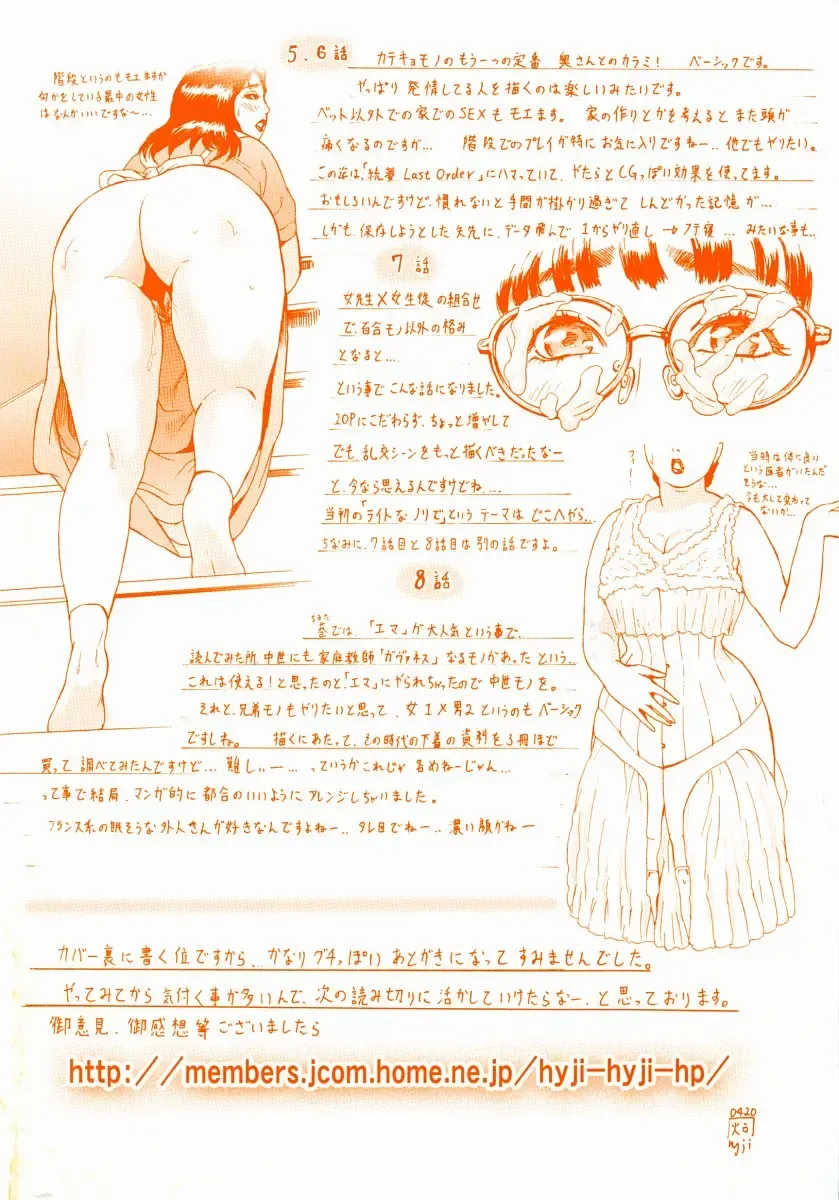 5.6話
階段というのもモエますか
何かをしている最中の女性
はなんかいいですな〜…
カテキョモノのもう一つの定番 奥さんとのカラミ! ベーシックです。
やっぱり 発情してる人を描くのは楽しいみたいです。
ベット以外での家でのSEXも モエます。 家の作りとかを考えると また頭が
痛くなるのですが… 階段でのプレイが特に お気に入りですねー.. 他でもヤリたい。
この姿は「銃夢 Last Order」にハマっていて、ヤたらとCGっぽい効果を使ってます。
おもしろいんですけど、慣れないと手間が掛かり過ぎて しんどかった記憶が…
しかも、保存しようとした矢先に、データ飛んで 1からヤリ直し → フテ寝 … みたいな事も..
7話
女先生×女生徒の組合せ
で、百合モノ以外の絡み
となると…
という事で こんな話になりました。
20Pにこだわらず、ちょっと増ヤして
でも、乱交シーンをもっと描くべきだったなー
と、今なら思えるんですけどね....
当初の「ライトな ノリで」という テーマは どこへやら..
ちなみに、7話目と8話目は 別の話ですよ。
フゥー!
当時は体に良い
という医者がいたんだ
そうな…
今も大して変わって
ないが!..
8話
ちまた
巷では、「エマ」が大人気という事で、
読んでみた所 中世にも家庭教師「ガヴァネス」なるモノがあった という..
これは使える!と思ったのと、「エマ」にヤられちゃったので中世モノを。
それと、兄弟モノもヤリたいと思って、女1×男2というのもベーシック
ですしね。 描くにあたって、その時代の下着の資料を3冊ほど
買って 調べてみたんですけど… 難しいー… っていうかこれじゃ 責めねーじゃん…
って事で結局、マンガ的に都合のいいようにアレンジしちゃいました。
フランス系の眠そうな外人さんが好きなんですよねー.. タレ目でねー.. 濃い顔がねー
カバー裏に書く位ですから... かなりグチっぽい あとがきになって すみませんでした。
ヤってみてから 気付く事が多いんで、次の読み切りに活かしていけたらなー、と思っております。
御意見、御感想等ございましたら
http://members.jcom.home.ne.jp/hyji-hyji-hp/
0420
hyji